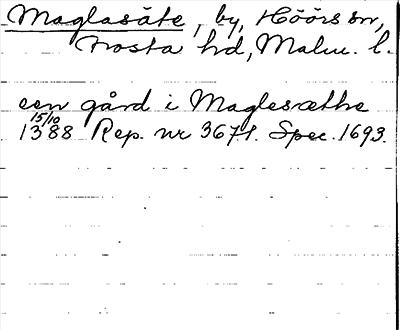 Maglasäte, by, Höörs sn,
Frosta hd, Malm. l.
een gård i Maglesæthe
15/10
1388 Rep. nr 3671. Spec. 1693.